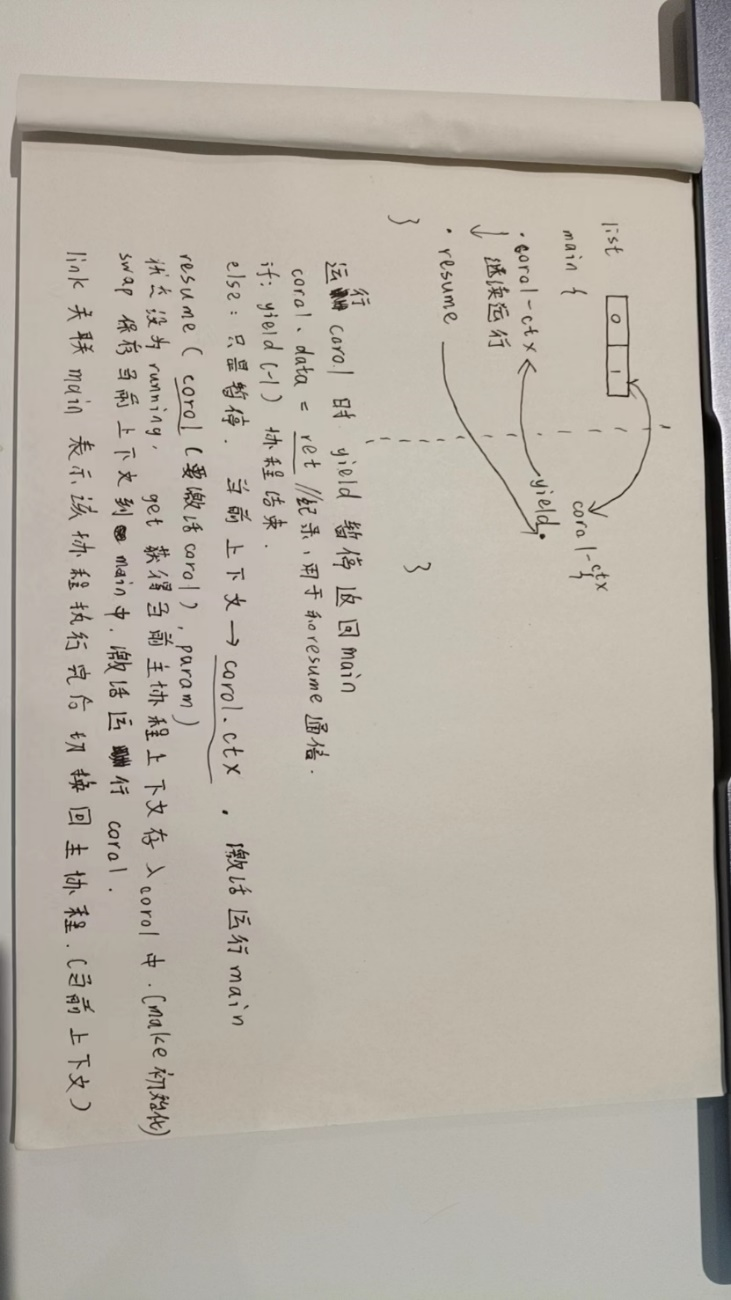 list 0 1
main {
· coro1-ctx
↓ 继续运行
yield.
coro1-ctx
{
· resume
}
}
运行 coro1 时 yield 暂停返回main
coro1.data = ret //纪录,用于和resume通信.
if: yield(-1) 协程结束.
else: 只是暂停. 当前上下文→coro1.ctx . 激活运行main
resume ( coro1 (要激活coro1), param)
状态设为running, get 获得当前主协程上下文存入coro1中.(make初始化)
swap 保存当前上下文到main中.激活运行 coro1.
link 关联 main 表示该协程执行完后切换回主协程.(当前上下文)